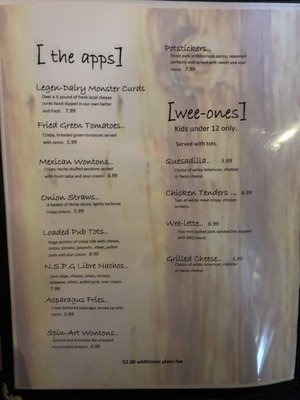 [ the apps]
Legen-Dairy Monster Curds
Over a ½ pound of fresh local cheese
curds hand dipped in our own batter
and fried. 7.99
Fried Green Tomatoes..
Crispy, breaded green tomatoes served
with ranch. 5.99
Mexican Wontons..
Crispy nacho stuffed wontons served
with fresh salsa and sour cream. 6.99
Onion Straws..
A basket of thinly sliced, lightly battered,
crispy onions. 5.99
Loaded Pub Tots..
Huge portion of crispy tots with cheese,
onion, tomato, jalapeño, olives, pulled
pork and sour cream 8.99
N.S.P.G Libre Nachos..
Corn chips, cheese, onion, tomato,
jalapeno, olives, pulled pork, sour cream
7.99
Asparagus Fries..
Crispy battered asparagus served with
5.99
Spin-Art Wontons..
Spinach and artichoke dip wrapped
in a crunchy wonton 6.99
Potstickers..
Diced pork in thin crispy pastry, seasoned
perfectly and served with sweet and sour
sauce. 7.99
[wee-ones]
Kids under 12 only.
Served with tots.
Quesadilla.. 5.99
Choice of white American, cheddar
or Swiss cheese.
Chicken Tenders ... 6.99
Two all white meat crispy chicken
tenders.
Wee-lette.. 6.99
Two mini pulled pork sandwiches topped
with BBQ sauce.
Grilled Cheese.. 5.99
Choice of white American, cheddar
or Swiss cheese.
$2.00 additional plate fee